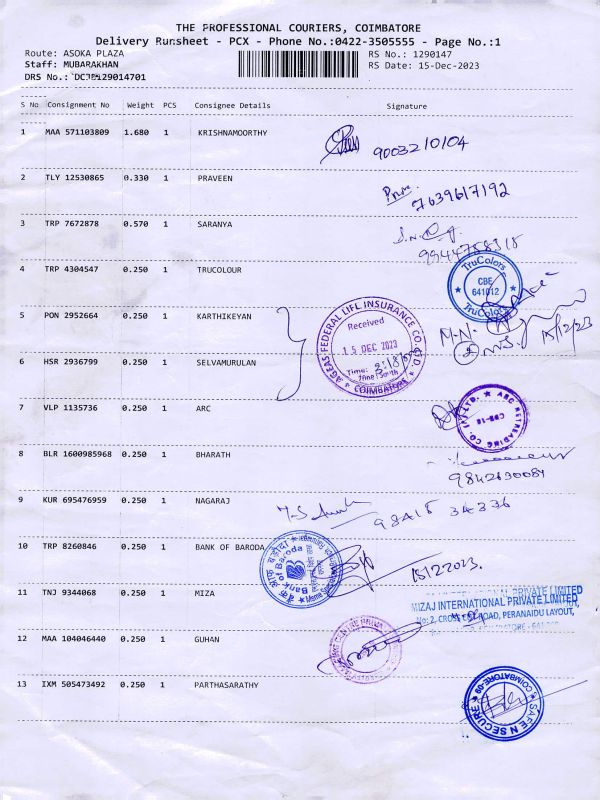 THE PROFESSIONAL COURIERS, COIMBATORE
Delivery Runsheet - PCX - Phone No.:0422-3505555 - Page No.:1
Route: ASOKA PLAZA
RS No.: 1290147
Staff: MUBARAKHAN
RS Date: 15-Dec-2023
DRS No.:
S No Consignment No Weight PCS Consignee Details Signature
1 MAA 571103809 1.680 1 KRISHNAMOORTHY
9003210104
2 TLY 12530865 0.330 1 PRAVEEN
7639617192
3 TRP 7672878 0.570 1 SARANYA
9944758315
4 TRP 4304547 0.250 1 TRUCOLOUR
TruColors
CBE
641012
TruColors
5 PON 2952664 0.250 1 KARTHIKEYAN
AGEAS FEDERAL LIFE INSURANCE CO. LTD.
Received
15 DEC 2023
Time:
COIMBATORE
15/12/23
6 HSR 2936799 0.250 1 SELVAMURULAN
7 VLP 1135736 0.250 1 ARC
ARC RETREADING CO. (P) LTD.
CBE-18
8 BLR 1600985968 0.250 1 BHARATH
9842630084
9 KUR 695476959 0.250 1 NAGARAJ
98418 34336
10 TRP 8260846 0.250 1 BANK OF BARODA
Bank of Baroda
15/12/2023.
11 TNJ 9344068 1 MIZA
0.250
MIZAJ INTERNATIONAL PRIVATE LIMITED
No: 2, CROSS CUT ROAD, PERANAIDU LAYOUT,
12 MAA 104046440 0.250 1 GUHAN
13 IXM 505473492 0.250 1 PARTHASARATHY
SAFE N SECURE
COIMBATORE-09